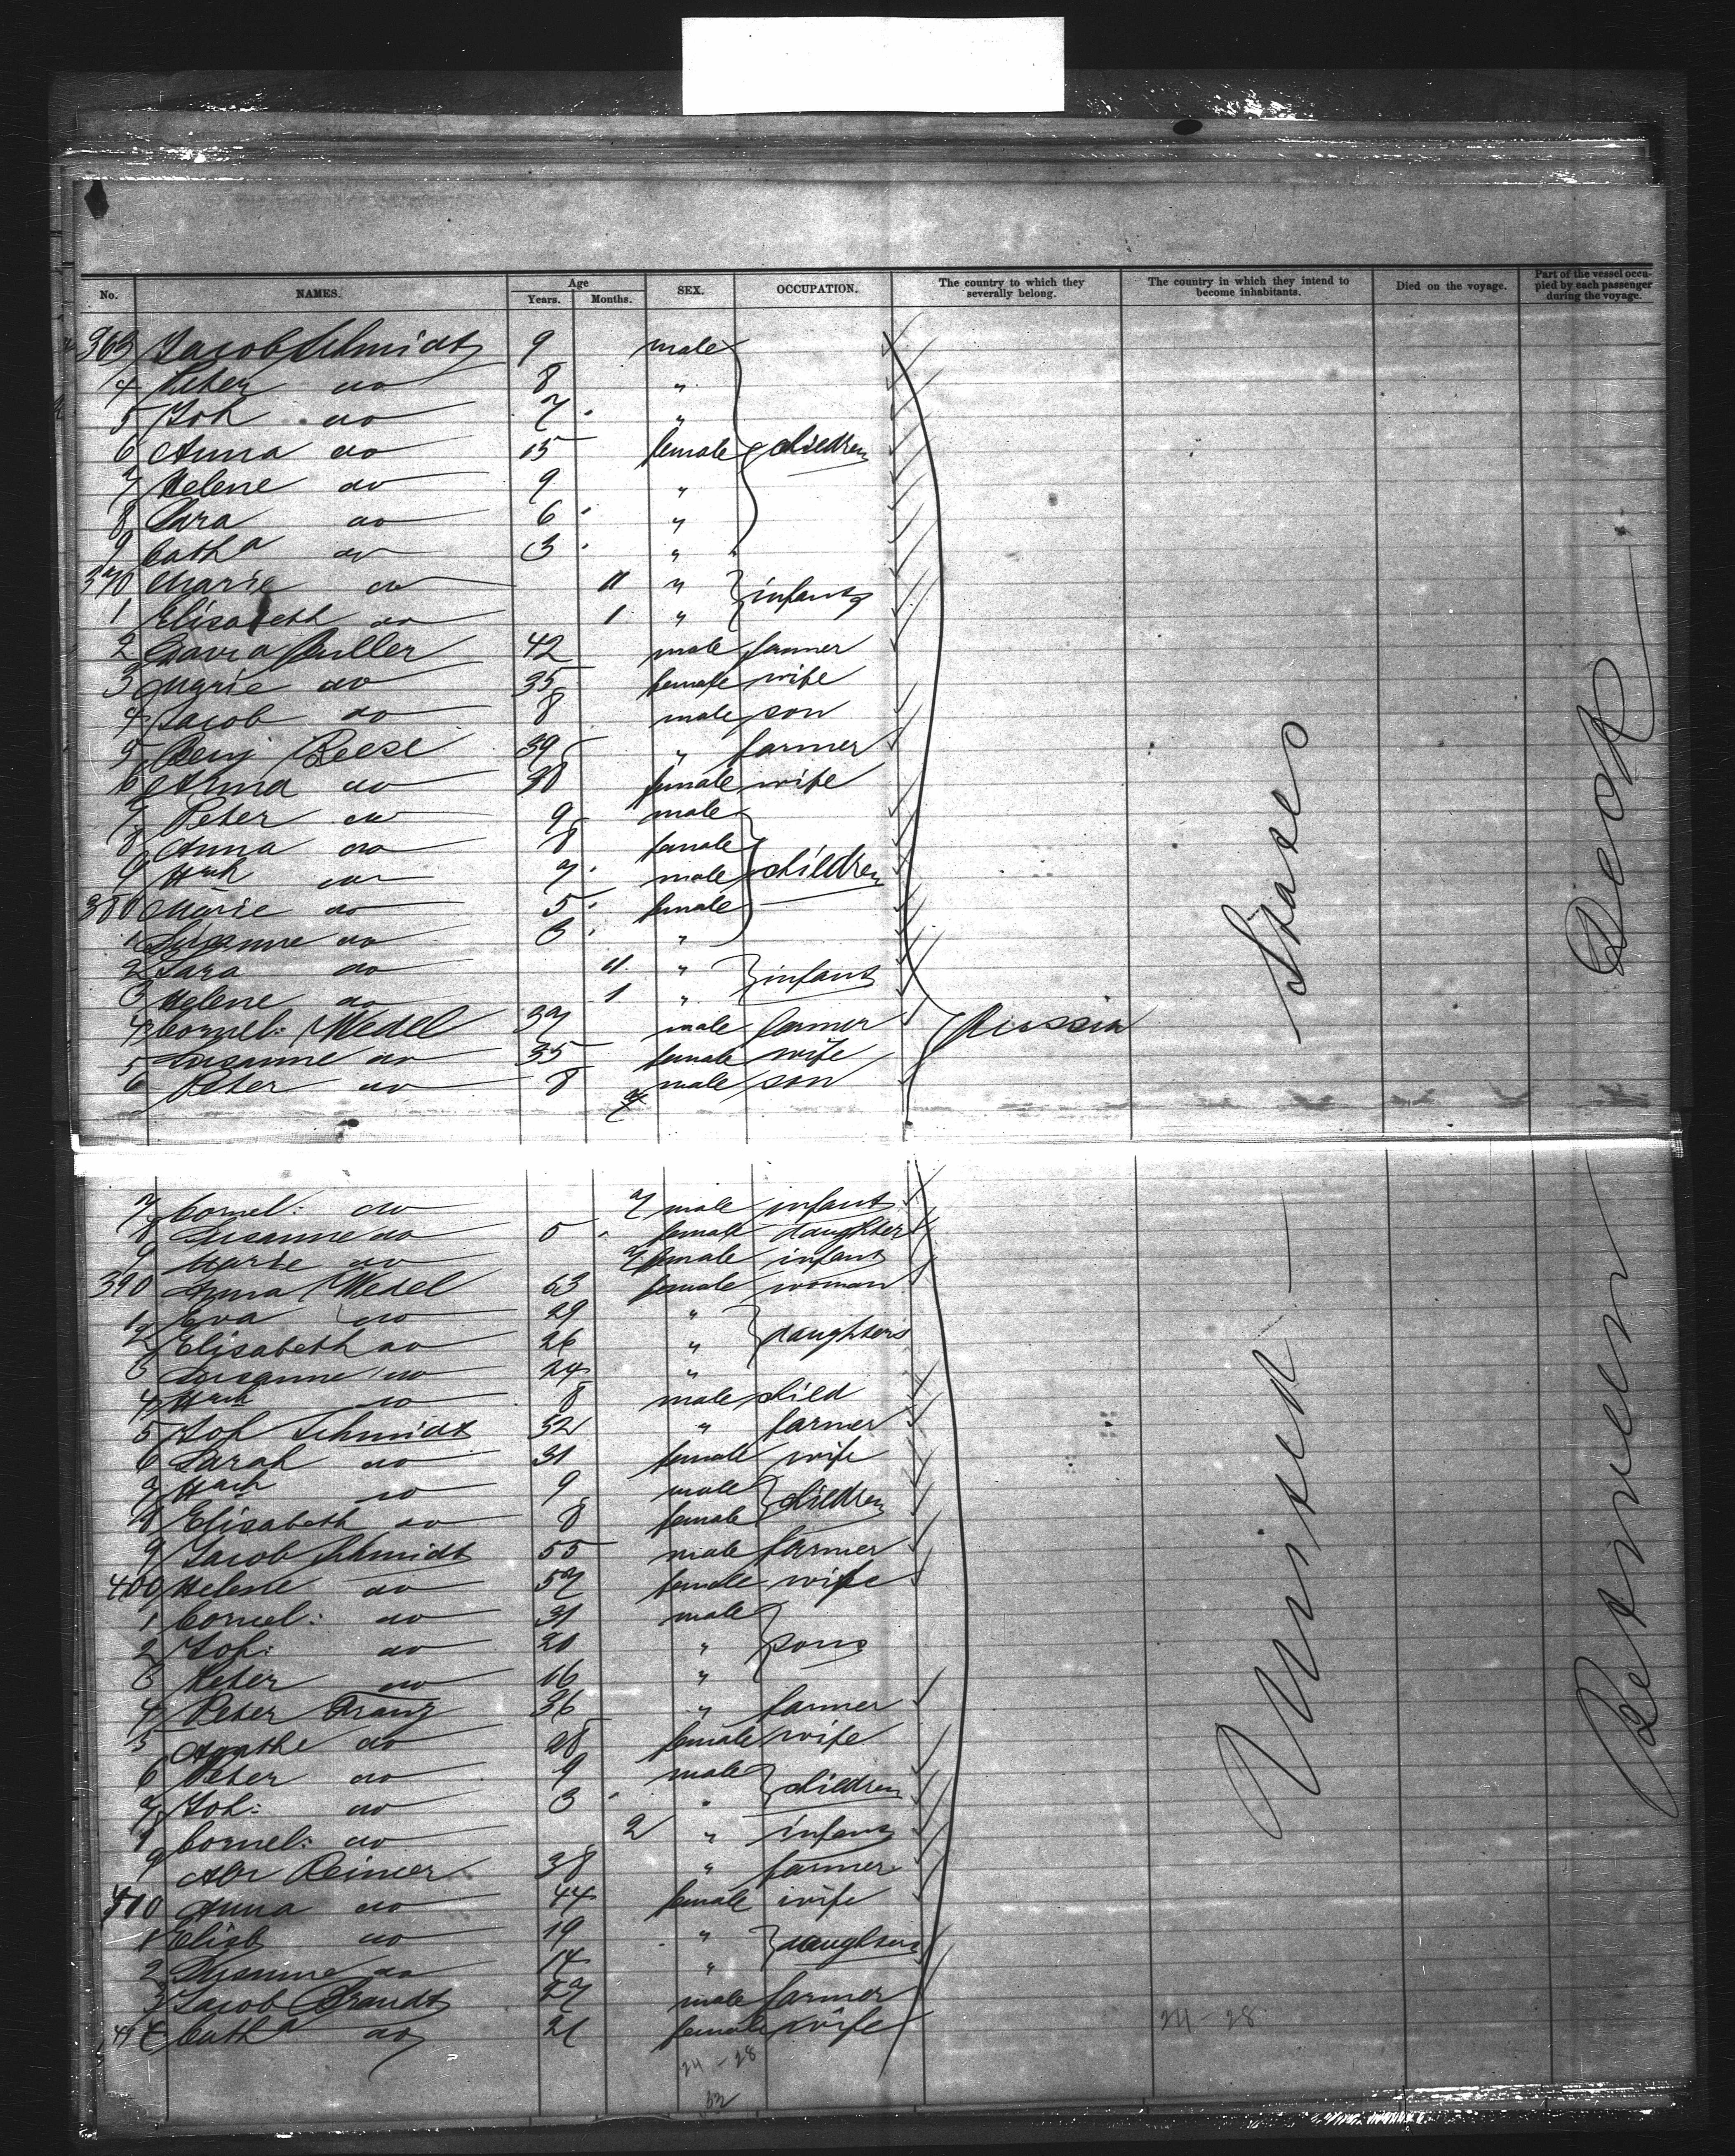 No. NAMES. Age Years. Months. SEX. OCCUPATION. The country to which they severally belong. The country in which they intend to become inhabitants. Died on the voyage. Part of the vessel occupied by each passenger during the voyage.
363 Jacob Schmidt 9 male
4 Peter do 8 "
5 Joh do 7 "
6 Anna do 15 female children
7 Helene do 9 "
8 Sara do 6 "
9 Catha do 3 "
370 Marie do 11 " infants
1 Elisabeth do 1 "
2 David Buller 42 male farmer
3 Marie do 35 female wife
4 Jacob do 8 male son
5 Benj Reese 39 " farmer
6 Anna do 30 female wife
7 Peter do 9 male
8 Anna do 8 female
9 Hnch do 7 male children
380 Marie do 5 female
1 Susanne do 3 "
2 Sara do 11 " infants
3 Helene do 1 "
4 Cornel: Wedel 37 male farmer Russia
5 Susanne do 35 female wife
6 Peter do 8 male son
7 Cornel: do 7 male infant
8 Susanne do 5 female daughter
9 Marie do female infant
390 Anna Wedel 63 female woman
1 Eva do 29 "
2 Elisabeth do 26 " daughters
3 Susanne do 24 "
4 Hnch do 8 male child
5 Joh Schmidt 32 " farmer
6 Sarah do 31 female wife
7 Hnch do 9 male children
8 Elisabeth do 8 female
9 Jacob Schmidt 55 male farmer
400 Helene do 57 female wife
1 Cornel: do 31 male
2 Joh: do 20 " sons
3 Peter do 16 "
4 Peter Franz 36 " farmer
5 Agathe do 28 female wife
6 Peter do 9 male children
7 Joh: do 3 "
8 Cornel: do 2 " infant
9 Abr Reimer 38 " farmer
410 Anna do 44 female wife
1 Elisb do 19 " daughters
2 Susanne do 14 "
3 Jacob Brandt 27 male farmer
414 Catha do 21 female wife
24-28
24-28
United States
Between Deck